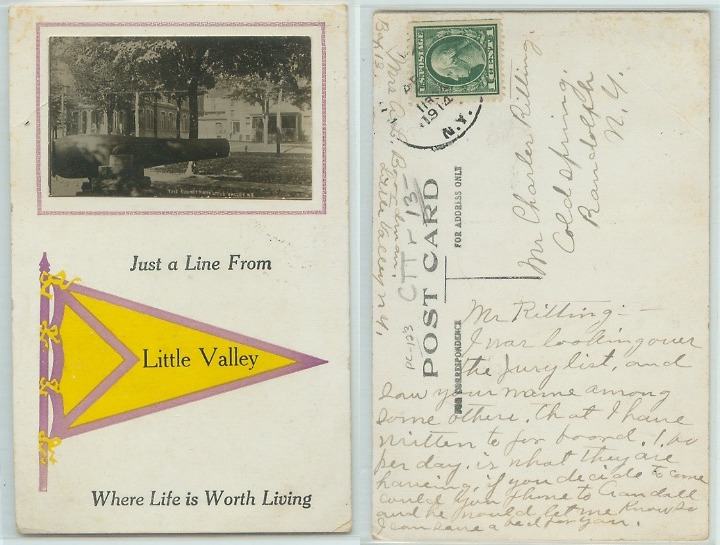 THE COURT PARK LITTLE VALLEY N.Y.
Just a Line From
Little Valley
Where Life is Worth Living
U.S. POSTAGE
1 CENT 1
APR
11
1914
N.Y.
Box 13,
Little Valley N.Y.
PC-123
CTT-13-
POST CARD
FOR ADDRESS ONLY
FOR CORRESPONDENCE
Mr Charler Rilling.
Cold spring.
Randolph
N.Y.
Mr Rilling:-
I was looking over
the Jury list, and
saw your name among
some others, that I have
written to for board. 1.00
per day. is what they are
haveing, if you decide to come
could you phone to Crandall
and he would let me know so
I can save a bed for you.